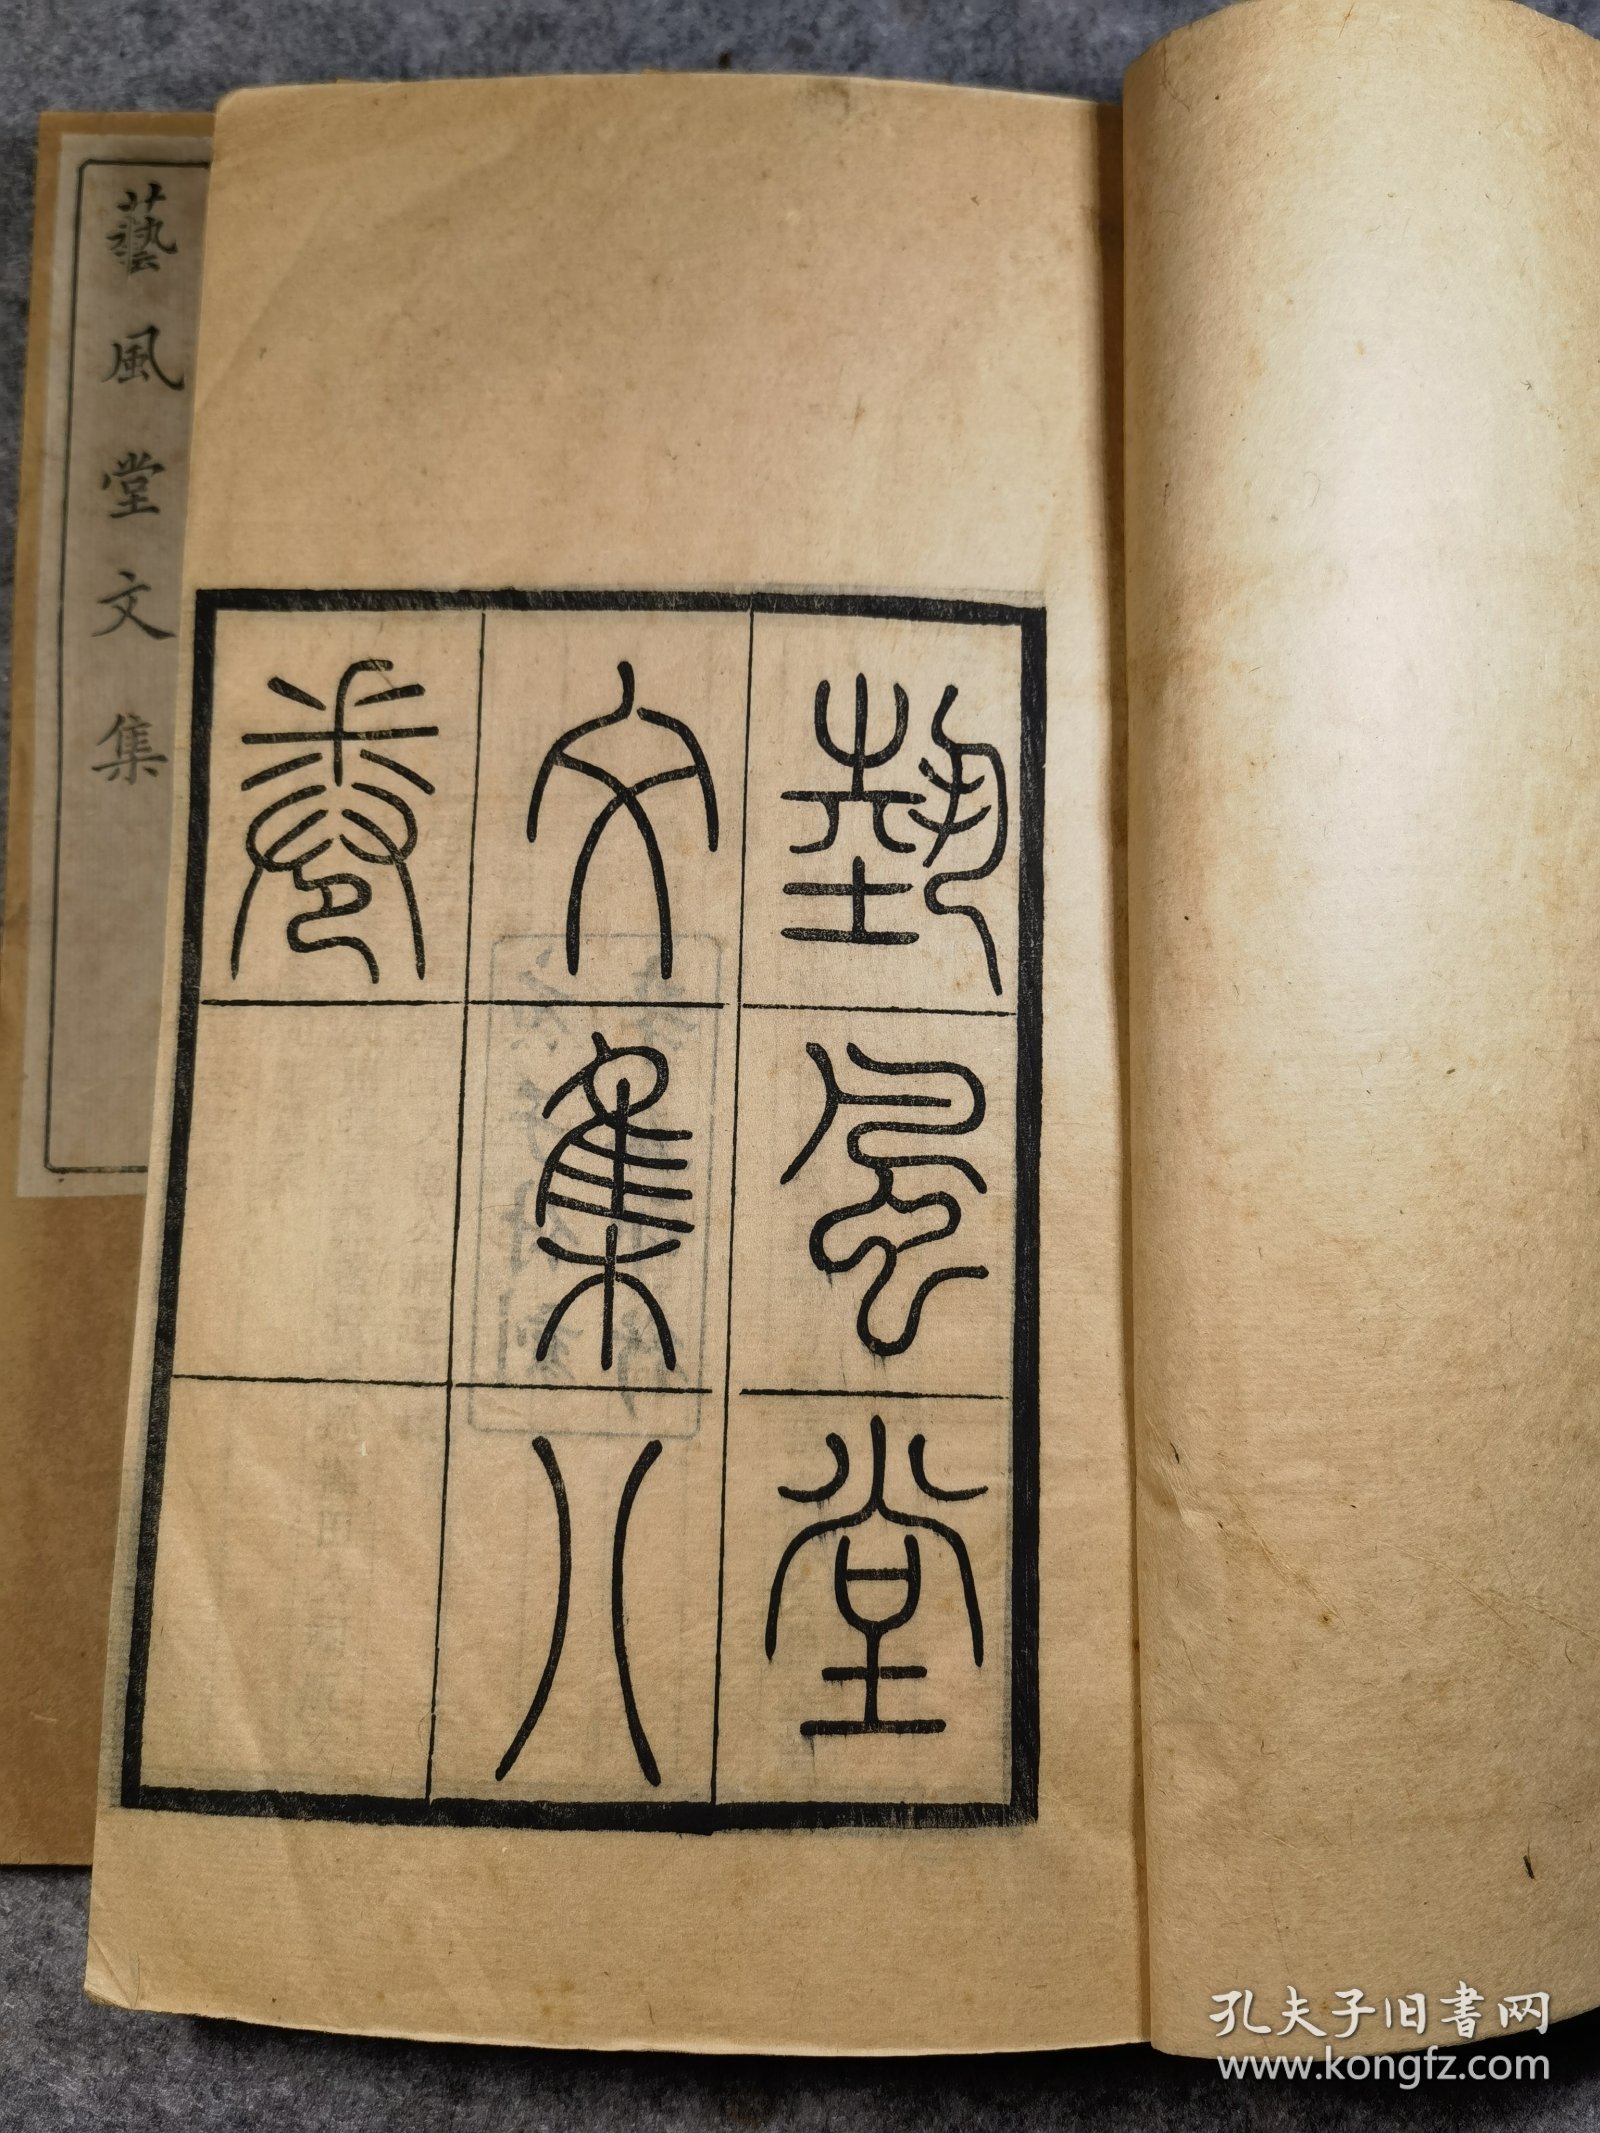 埶風堂
文集八
卷
藝風堂文集
孔夫子旧書网
www.kongfz.com